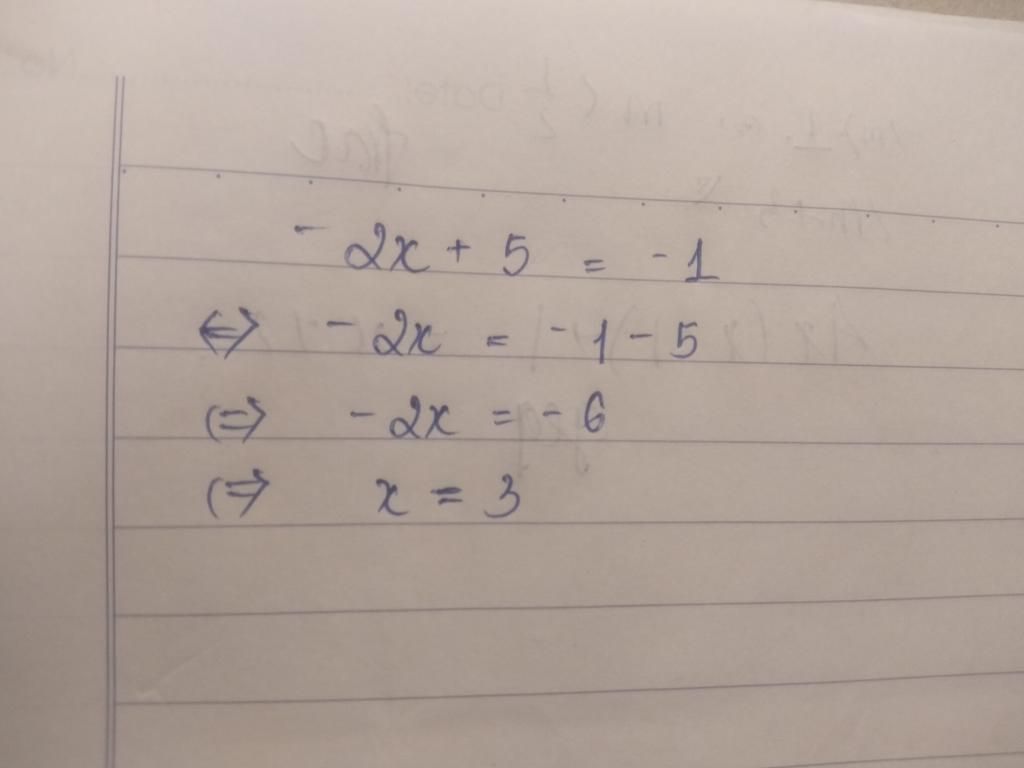 - 2x + 5 = -1
⇔ - 2x = -1 - 5
⇔ - 2x = - 6
⇔ x = 3